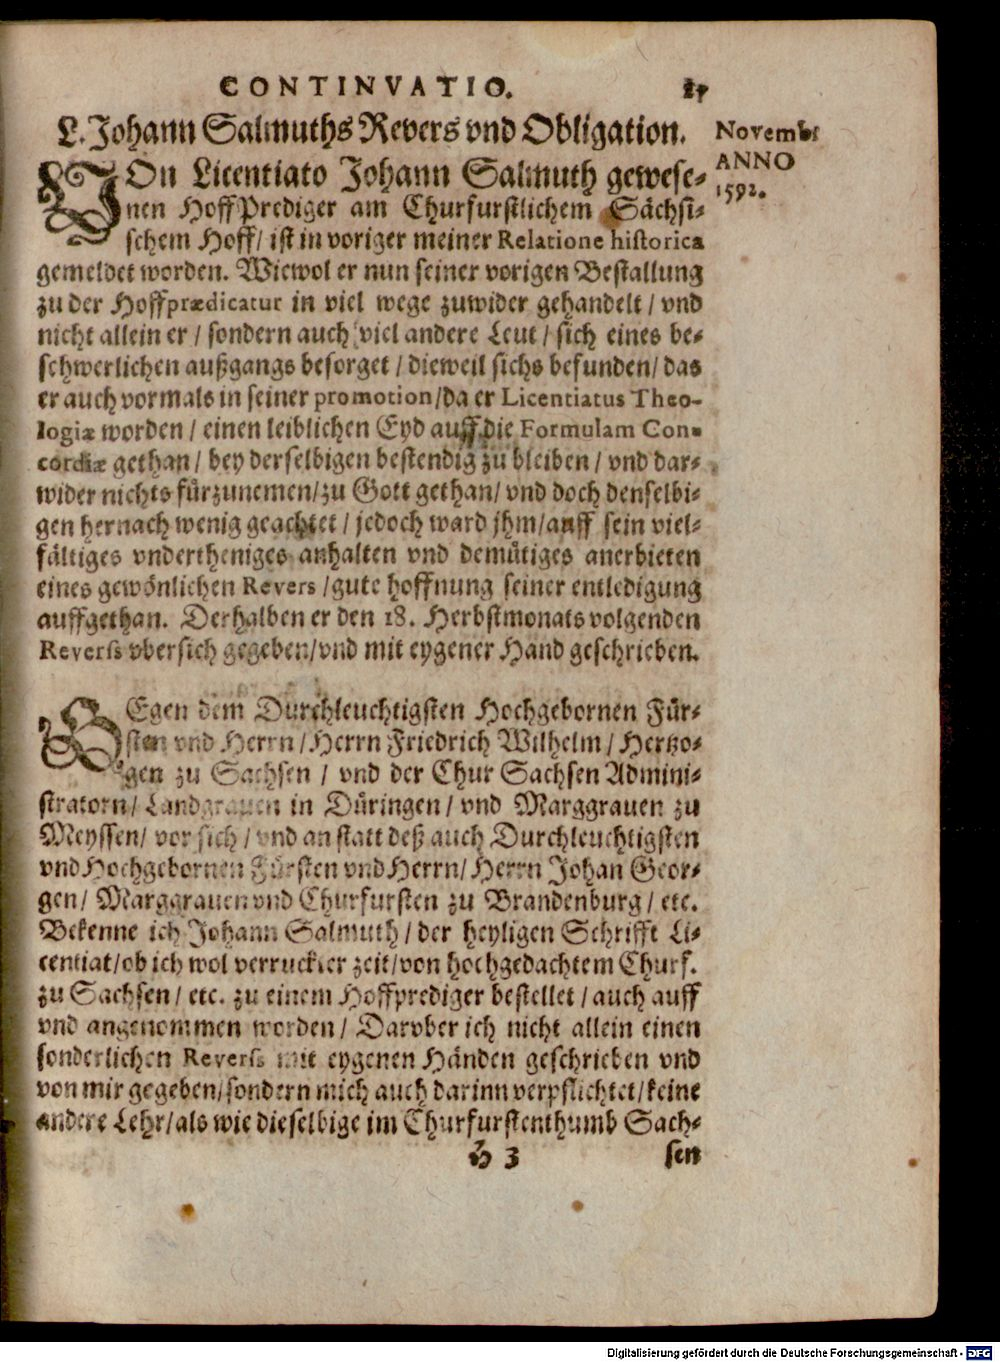 CONTINVATIO.
L. Johann Salmuths Revers vnd Obligation.
Novemb:
ANNO
1592.
VOn Licentiato Johann Salmuth gewese-
nen HoffPrediger am Churfurstlichem Sächsi-
schem Hoff/ ist in voriger meiner Relatione historica
gemeldet worden. Wiewol er nun seiner vorigen Bestallung
zu der Hoffprædicatur in viel wege zuwider gehandelt / vnd
nicht allein er / sondern auch viel andere Leut / sich eines be-
schwerlichen außgangs besorget / dieweil sichs befunden/ das
er auch vormals in seiner promotion/da er Licentiatus Theo-
logiæ worden / einen leiblichen Eyd auff die Formulam Con-
cordiæ gethan / bey derselbigen bestendig zu bleiben / vnd dar-
wider nichts fürzunemen/zu Gott gethan/ vnd doch denselbi-
gen hernach wenig geachtet / jedoch ward jhm/auff sein viel-
fältiges vndertheniges anhalten vnd demütiges anerbieten
eines gewönlichen Revers /gute hoffnung seiner entledigung
auffgethan. Derhalben er den 18. Herbstmonats volgenden
Reverss vber sich gegeben/vnd mit eygener Hand geschrieben.
GEgen dem Durchleuchtigsten Hochgebornen Für-
sten vnd Herrn / Herrn Friedrich Wilhelm / Hertzo-
gen zu Sachsen / vnd der Chur Sachsen Admini-
stratorn/ Landgrauen in Düringen/ vnd Marggrauen zu
Meyssen/ vor sich / vnd an statt deß auch Durchleuchtigsten
vnd Hochgebornen Fürsten vnd Herrn/ Herrn Johan Geor-
gen/ Marggrauen vnd Churfursten zu Brandenburg / etc.
Bekenne ich Johann Salmuth / der heyligen Schrifft Li-
centiat/ob ich wol verruckter zeit/von hochgedachtem Churf.
zu Sachsen/ etc. zu einem Hoffprediger bestellet / auch auff
vnd angenommen worden/ Darvber ich nicht allein einen
sonderlichen Reverss mit eygenen Händen geschrieben vnd
von mir gegeben/sondern mich auch darinn verpflichtet/keine
andere Lehr/als wie dieselbige im Churfurstenthumb Sach-
H 3 sen
Digitalisierung gefördert durch die Deutsche Forschungsgemeinschaft - DFG